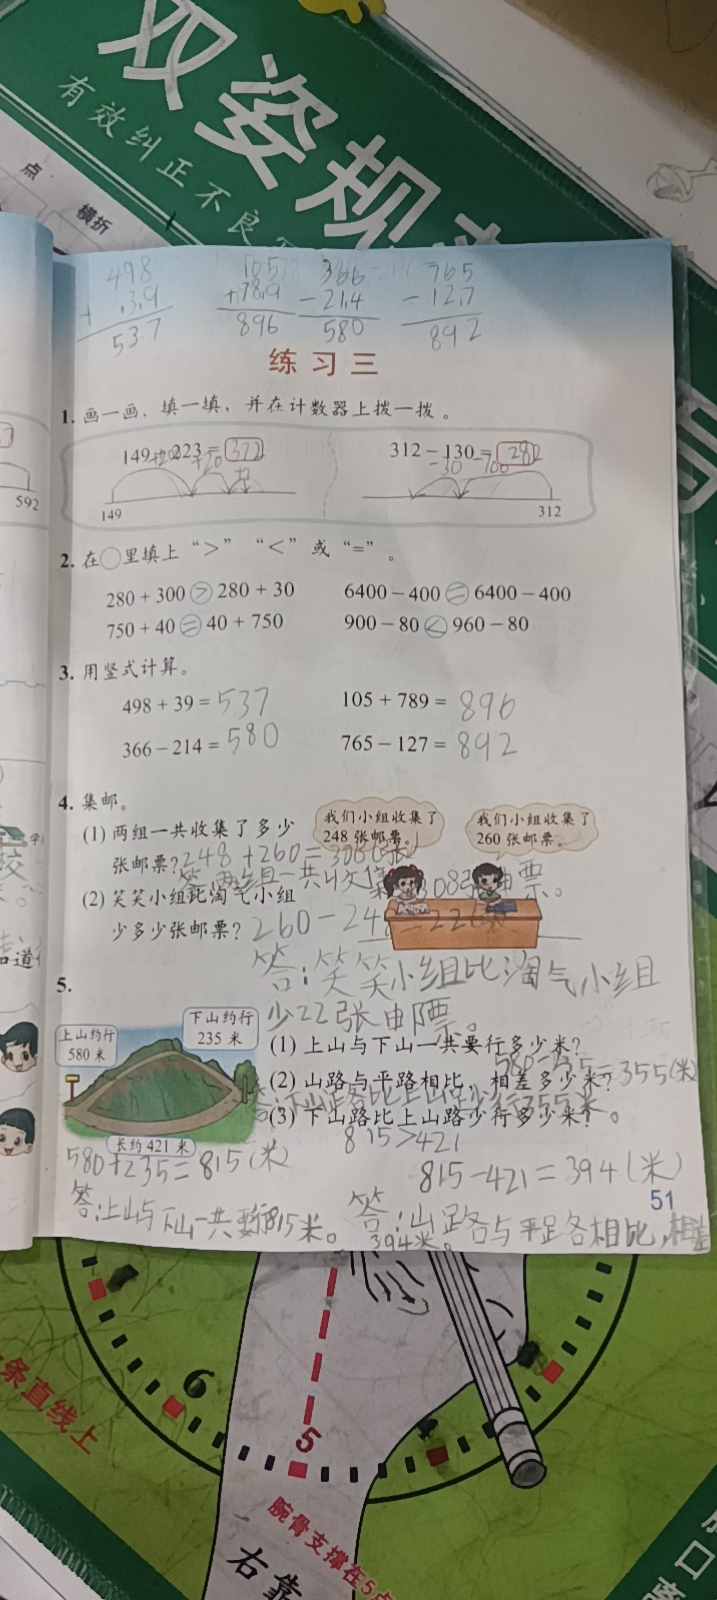 双姿规
有效纠正不良
点
横折
498
+ 39
537
105
+789
896
366
-214
580
765
-127
892
练习三
1. 画一画，填一填，并在计数器上拨一拨。
149+223=372
312-130=282
+20
-30
149
312
592
2. 在○里填上“>”“<”或“=”。
280+300>280+30
6400-400=6400-400
750+40=40+750
900-80<960-80
3. 用竖式计算。
498+39=537
105+789=896
366-214=580
765-127=892
4. 集邮。
我们小组收集了
248 张邮票。
我们小组收集了
260 张邮票。
(1) 两组一共收集了多少
张邮票?
248+260=
(2) 笑笑小组比淘气小组
少多少张邮票?
260-248=22
答:笑笑小组比淘气小组
少22张邮票。
5.
上山约行
580 米
下山约行
235 米
长约 421 米
(1) 上山与下山一共要行多少米?
(2) 山路与平路相比，相差多少米?
=355(米)
(3) 下山路比上山路少行多少米?
815>421
580+235=815(米)
815-421=394(米)
答:上山与下山一共要行815米。
答:山路与平路相比,相差
394米。
51
6
5
4
条直线上
腕骨支撑在5点
右靠